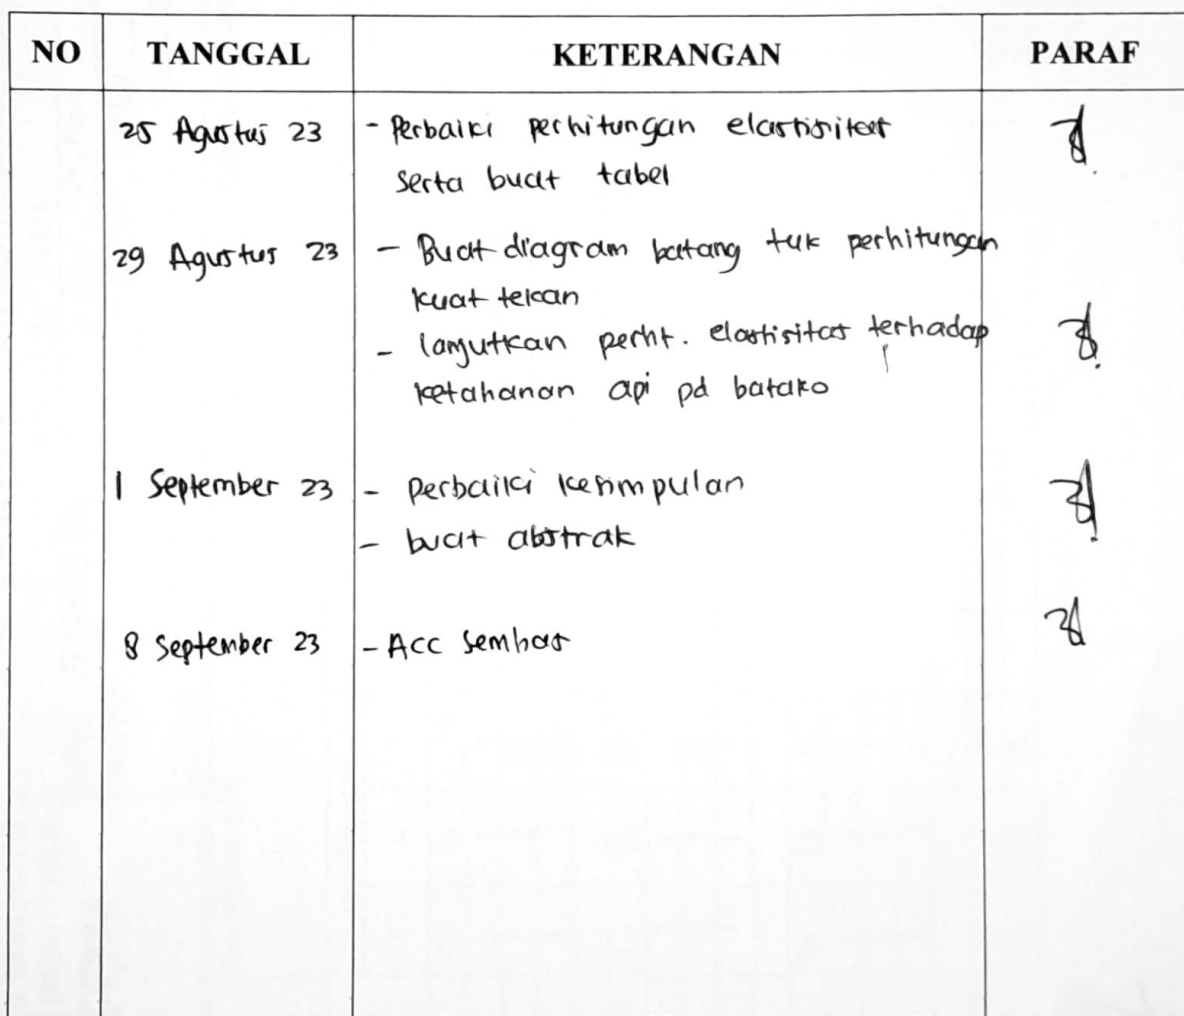 NO TANGGAL KETERANGAN PARAF
25 Agustus 23 - Perbaiki perhitungan elastisitas
serta buat tabel
29 Agustus 23 - Buat diagram batang tuk perhitungan
kuat tekan
- lanjutkan perht. elastisitas terhadap
ketahanan api pd batako
1 September 23 - perbaiki kesimpulan
- buat abstrak
8 September 23 - Acc Semhas